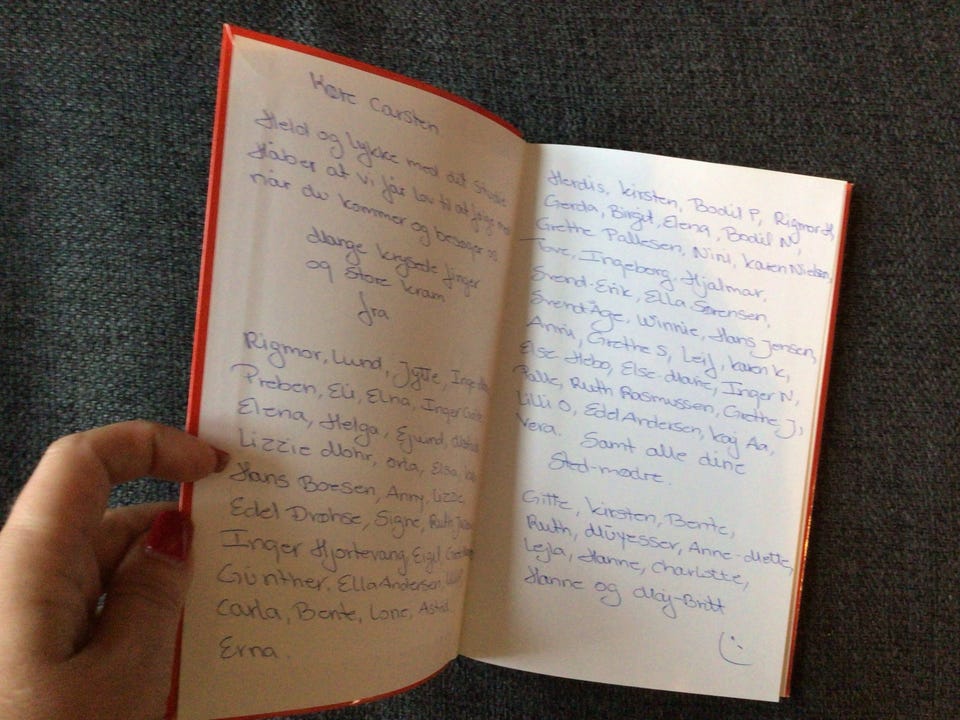 Kære Carsten
Held og lykke med dit studie
Håber at vi får lov til at følge med
når du kommer og besøger os
Mange krydsede finger
og store kram
fra
Rigmor, Lund, Jytte,
Preben, Eli, Elna, Inger
Elena, Helga, Ejvind,
Lizzie Mohr, Orla, Elsa,
Hans Boesen, Anny, Lizzie
Edel Drohse, Signe, Ruth
Inger Hjortevang, Eigil,
Günther, Ella Andersen,
Carla, Bente, Lone, Astrid
Erna.
Herdis, Kirsten, Bodil P, Rigmor H,
Gerda, Birgit, Elena, Bodil N,
Grethe Pallesen, Nini, Karen Nielsen,
Tove, Ingeborg, Hjalmar,
Svend-Erik, Ella Sørensen,
Svend Åge, Winnie, Hans Jensen,
Anni, Grethe S, Leif, Karen K,
Else Hebo, Else-Marie, Inger N,
Palle, Ruth Rasmussen, Grethe J,
Lilli O, Edel Andersen, Kaj Aa,
Vera. Samt alle dine
Sted-mødre.
Gitte, Kirsten, Bente,
Ruth, Müyesser, Anne-Mette,
Lejla, Hanne, Charlotte,
Hanne og Maj-Britt